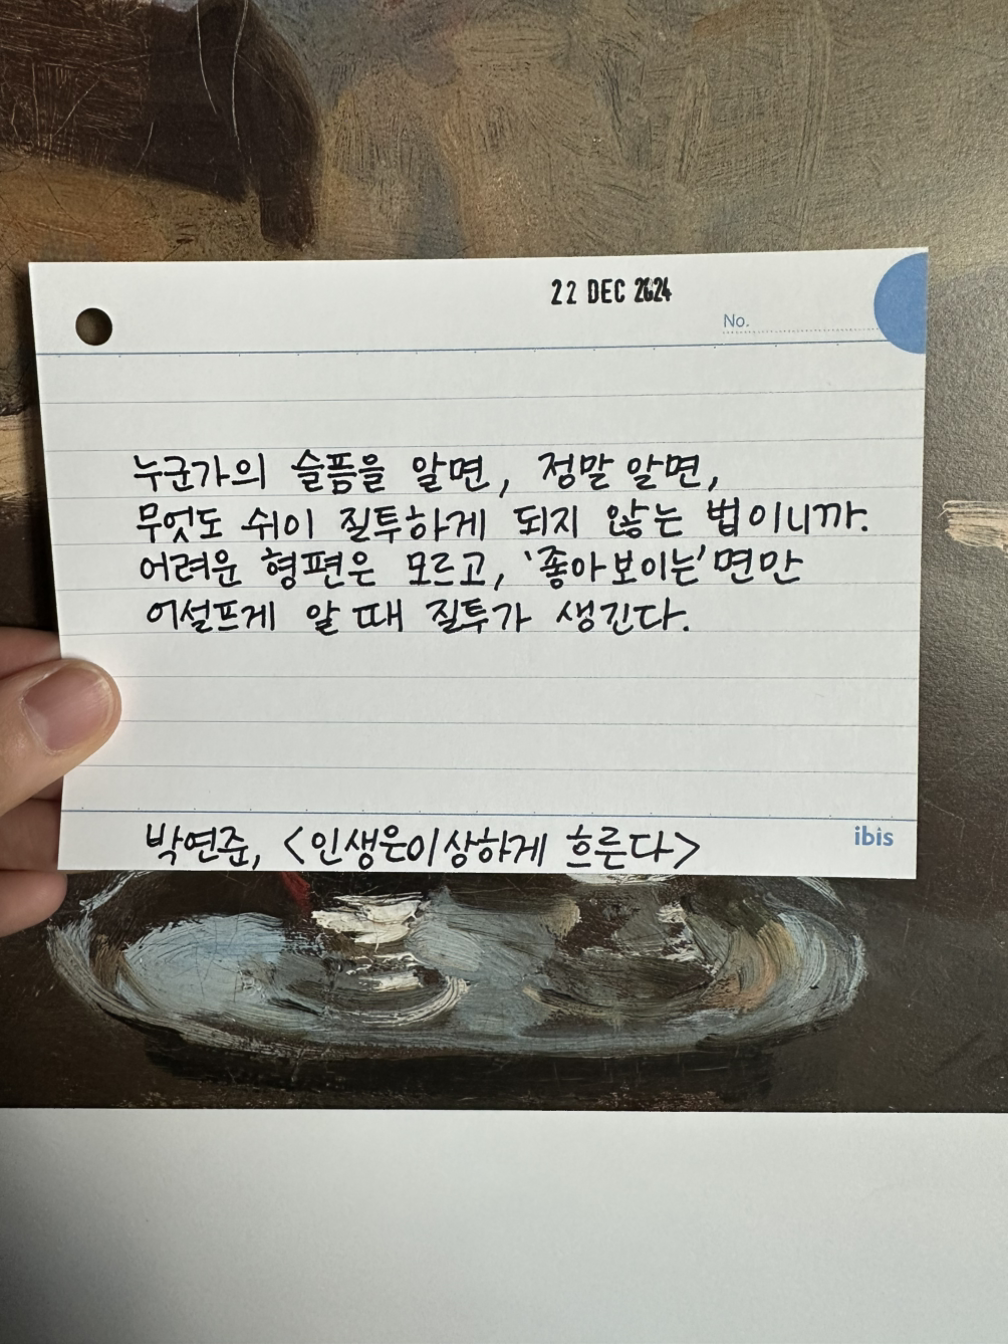 22 DEC 2024
No.
누군가의 슬픔을 알면, 정말 알면,
무엇도 쉬이 질투하게 되지 않는 법이니까.
어려운 형편은 모르고, '좋아보이는' 면만
어설프게 알 때 질투가 생긴다.
박연준, <인생은 이상하게 흐른다>
ibis